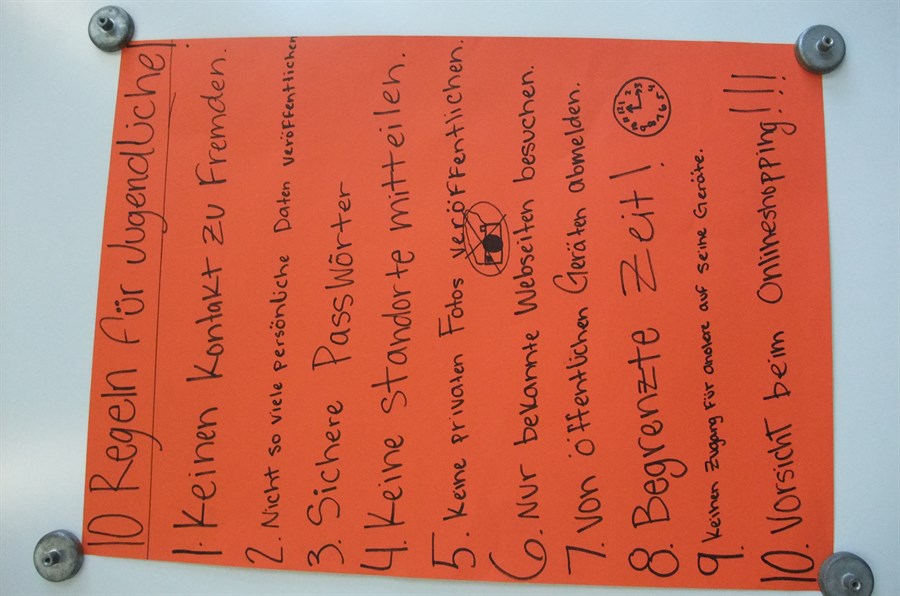 10 Regeln für Jugendliche!
1. Keinen Kontakt zu Fremden.
2. Nicht so viele persönliche Daten veröffentlichen
3. Sichere PassWörter
4. Keine Standorte mitteilen.
5. Keine privaten Fotos veröffentlichen.
6. Nur bekannte Webseiten besuchen.
7. Von öffentlichen Geräten abmelden.
8. Begrenzte Zeit!
9. Keinen Zugang für andere auf seine Geräte.
10. Vorsicht beim Onlineshopping!!!